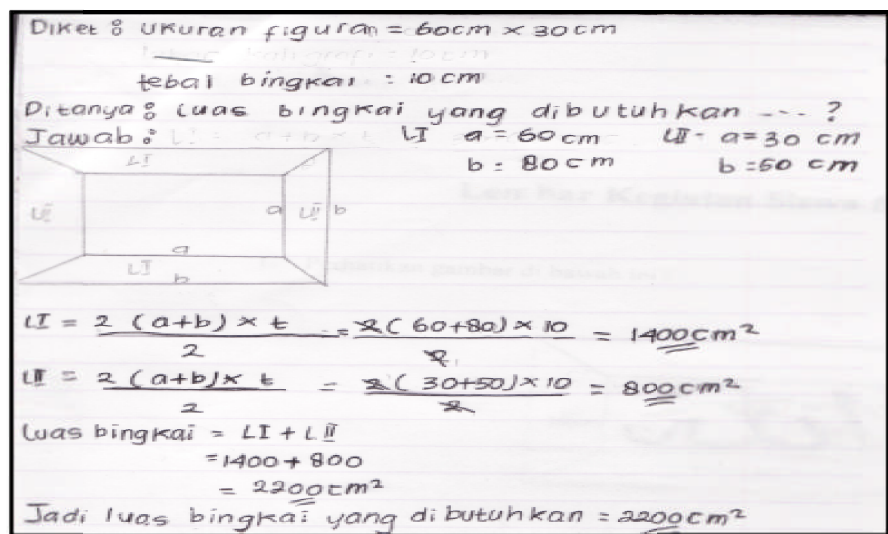 Diket : ukuran figuran = 60cm × 30cm
tebal bingkai : 10 cm
Ditanya : Luas bingkai yang dibutuhkan --- ?
Jawab : LI a = 60 cm LII - a = 30 cm
b = 80 cm b = 50 cm
LI
LII a LII b
a
LI
b
LI = 2 (a+b) × t / 2 = 2 (60+80) × 10 / 2 = 1400 cm²
LII = 2 (a+b) × t / 2 = 2 (30+50) × 10 / 2 = 800 cm²
Luas bingkai = LI + LII
= 1400 + 800
= 2200 cm²
Jadi luas bingkai yang dibutuhkan = 2200 cm²